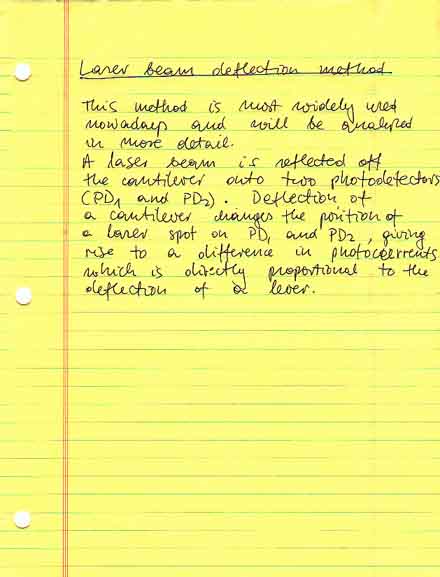 Laser beam deflection method
This method is most widely used
nowadays and will be analyzed
in more detail.
A laser beam is reflected off
the cantilever onto two photodetectors
(PD1 and PD2). Deflection of
a cantilever changes the position of
a laser spot on PD1 and PD2, giving
rise to a difference in photocurrents
which is directly proportional to the
deflection of a lever.